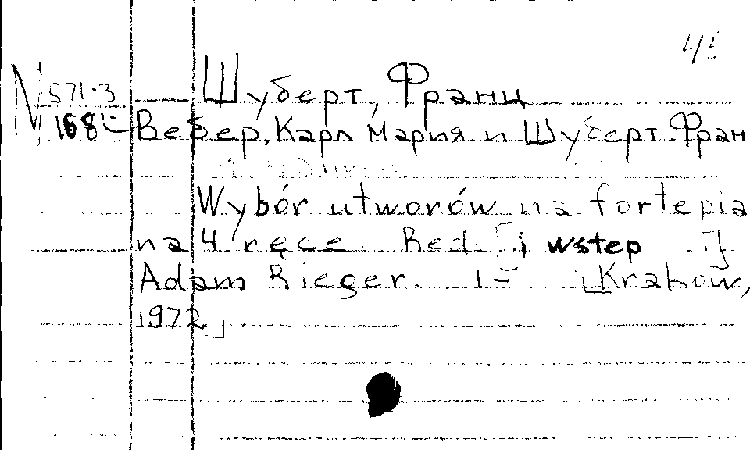 45
Шуберт, Франц
N 571-3
168
Вебер, Карл Мария и Шуберт Фран
Wybór utworów na fortepia
na 4 ręce Red i wstęp
Adam Rieger. 1- [Kraków,
1972]